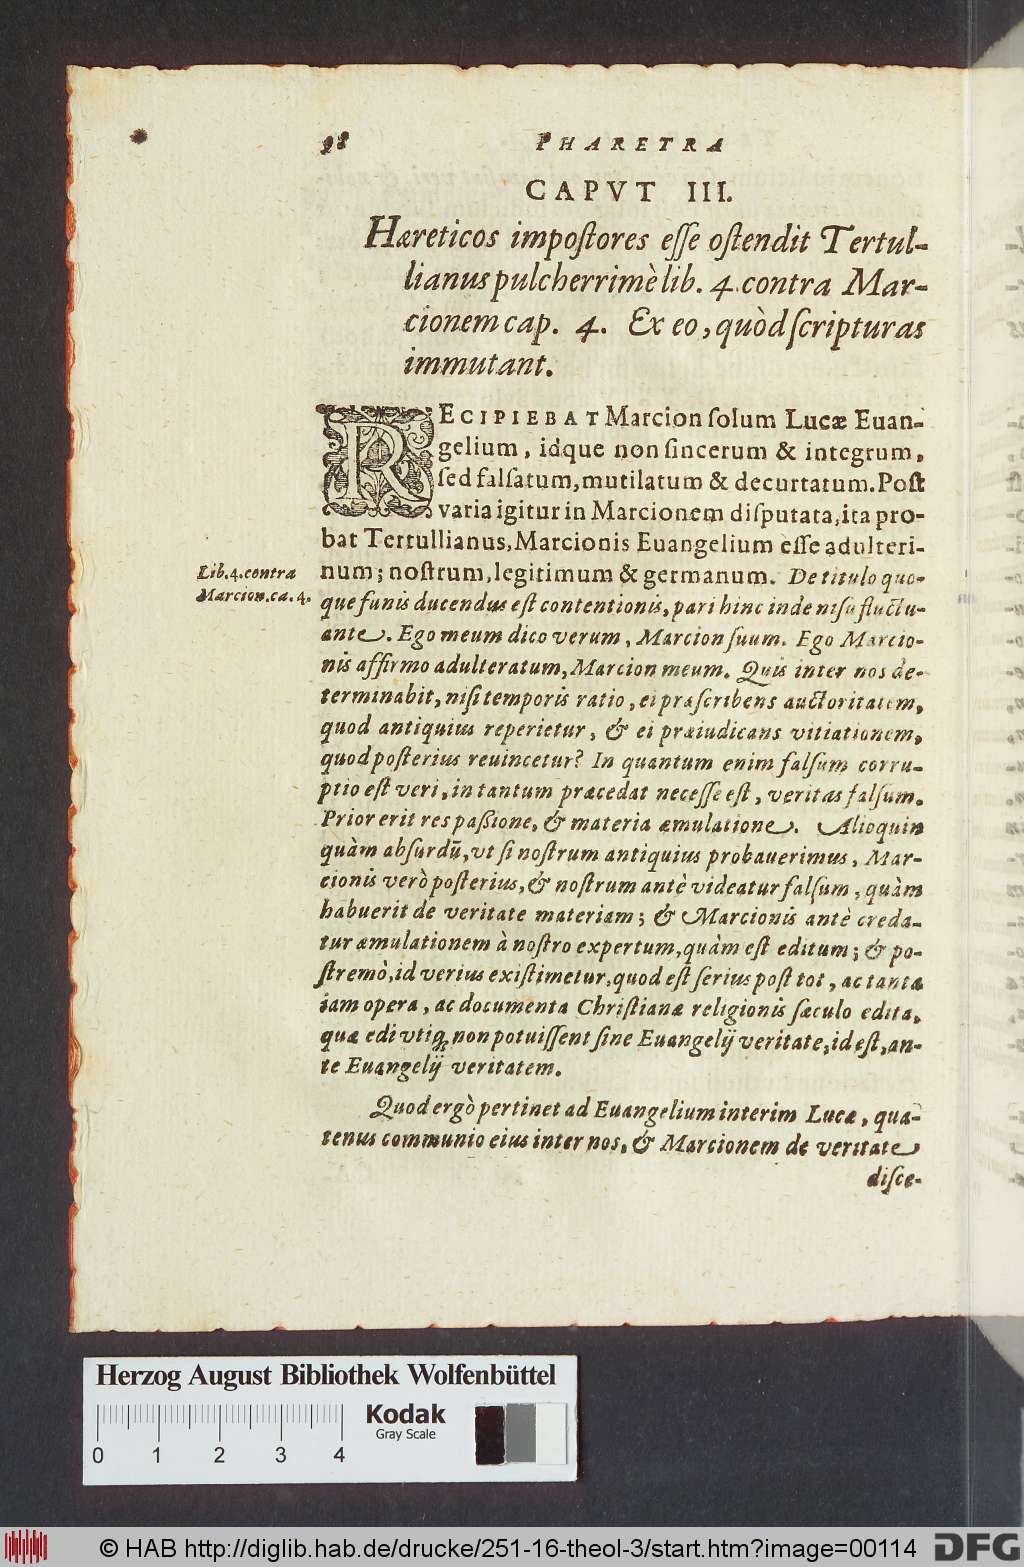 98 PHARETRA
CAPVT III.
Hæreticos impoſtores eſſe oſtendit Tertul-
lianus pulcherrimè lib. 4. contra Mar-
cionem cap. 4. Ex eo, quòd ſcripturas
immutant.
RECIPIEBAT Marcion ſolum Lucæ Euan-
gelium, idque non ſincerum & integrum,
ſed falſatum, mutilatum & decurtatum. Poſt
varia igitur in Marcionem diſputata, ita pro-
bat Tertullianus, Marcionis Euangelium eſſe adulteri-
num; noſtrum, legitimum & germanum. De titulo quo-
Lib. 4. contra
Marcion. ca. 4.
que funis ducendus eſt contentionis, pari hinc inde niſu fluctu-
ante. Ego meum dico verum, Marcion ſuum. Ego Marcio-
nis affirmo adulteratum, Marcion meum. Quis inter nos de-
terminabit, niſi temporis ratio, ei præſcribens auctoritatem,
quod antiquius reperietur, & ei præiudicans vitiationem,
quod poſterius reuincetur? In quantum enim falſum corru-
ptio eſt veri, in tantum præcedat neceſſe eſt, veritas falſum.
Prior erit res paßione, & materia æmulatione. Alioquin
quàm abſurdũ, vt ſi noſtrum antiquius probauerimus, Mar-
cionis verò poſterius, & noſtrum antè videatur falſum, quàm
habuerit de veritate materiam; & Marcionis antè creda-
tur æmulationem à noſtro expertum, quàm eſt editum; & po-
ſtremò, id verius exiſtimetur, quod eſt ſerius poſt tot, ac tanta
iam opera, ac documenta Chriſtianæ religionis ſæculo edita,
quæ edi vtiq; non potuiſſent ſine Euangelij veritate, id eſt, an-
te Euangelij veritatem.
Quod ergò pertinet ad Euangelium interim Lucæ, qua-
tenus communio eius inter nos, & Marcionem de veritate
diſce-
Herzog August Bibliothek Wolfenbüttel
Kodak
Gray Scale
0 1 2 3 4
© HAB http://diglib.hab.de/drucke/251-16-theol-3/start.htm?image=00114
DFG